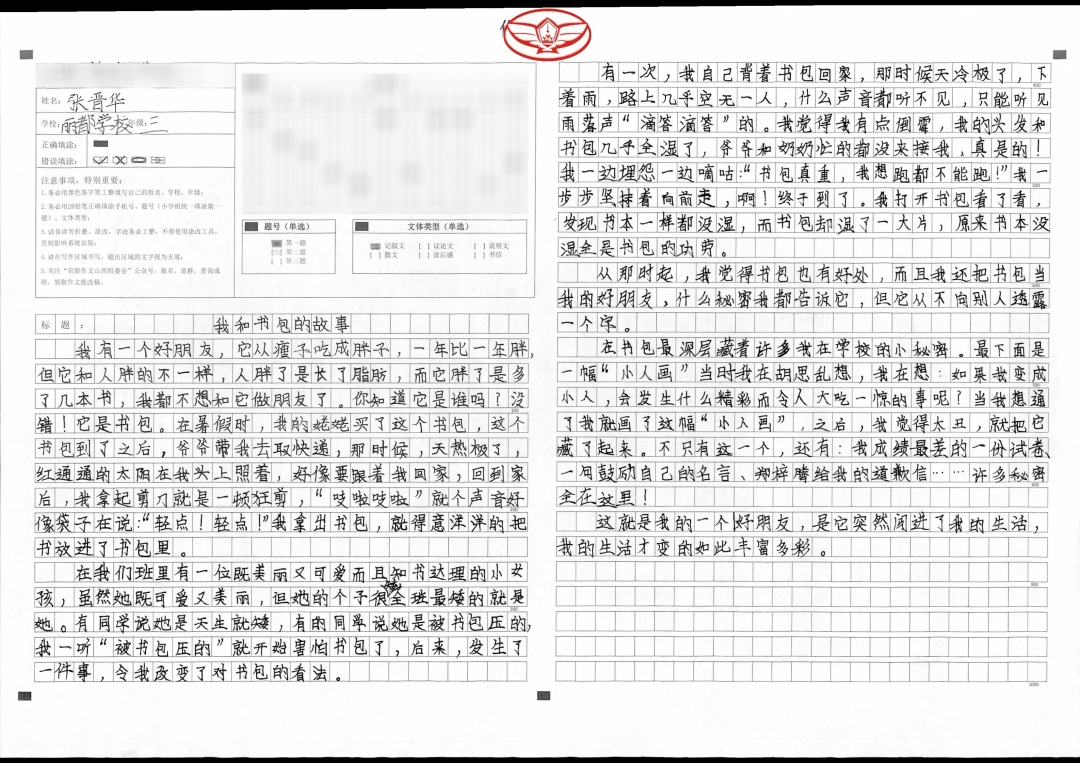 姓名：张晋华
学校：丽都学校年级：三
正确填涂：
错误填涂：
注意事项，特别重要：
1.务必用黑色签字笔工整填写自己的姓名、学校、年级；
2.务必用2B铅笔正确填涂手机号、题号（小学组统一填涂第一题）、文体类型；
3.试卷请勿折叠、涂改，字迹务必工整，不得使用涂改工具，否则影响系统识别；
4.请在写作区域书写，超出区域的文字视为无效；
5.关注“创新作文山西组委会”公众号，报名、进群、查询成绩、领取作文批改稿。
题号（单选）
第一题
[ ] 第二题
[ ] 第三题
文体类型（单选）
记叙文 [ ] 议论文 [ ] 说明文
[ ] 散文 [ ] 读后感 [ ] 书信
标题：我和书包的故事
我有一个好朋友，它从瘦子吃成胖子，一年比一年胖，
但它和人胖的不一样，人胖了是长了脂肪，而它胖了是多
了几本书，我都不想和它做朋友了。你知道它是谁吗？没
错！它是书包。在暑假时，我的姥姥买了这个书包，这个
书包到了之后，爷爷带我去取快递，那时候，天热极了，
红通通的太阳在我头上照着，好像要跟着我回家，回到家
后，我拿起剪刀就是一顿狂剪，“吱啦吱啦”就个声音好
像袋子在说：“轻点！轻点！”我拿出书包，就得意洋洋的把
书放进了书包里。
在我们班里有一位既美丽又可爱而且知书达理的小女
孩，虽然她既可爱又美丽，但她的个子很矮全班最矮的就是
她。有同学说她是天生就矮，有的同学说她是被书包压的，
我一听“被书包压的”就开始害怕书包了，后来，发生了
一件事，令我改变了对书包的看法。
有一次，我自己背着书包回家，那时候天冷极了，下
着雨，路上几乎空无一人，什么声音都听不见，只能听见
雨落声“滴答滴答”的。我觉得我有点倒霉，我的头发和
书包几乎全湿了，爷爷和奶奶忙的都没来接我，真是的！
我一边埋怨一边嘀咕：“书包真重，我想跑都不能跑！”我一
步步坚持着向前走，啊！终于到了。我打开书包看了看，
发现书本一样都没湿，而书包却湿了一大片，原来书本没
湿全是书包的功劳。
从那时起，我觉得书包也有好处，而且我还把书包当
我的好朋友，什么秘密我都告诉它，但它从不向别人透露
一个字。
在书包最深层藏着许多我在学校的小秘密。最下面是
一幅“小人画”当时我在胡思乱想，我在想：如果我变成
小人，会发生什么精彩而令人大吃一惊的事呢？当我想通
了我就画了这幅“小人画”，之后，我觉得太丑，就把它
藏了起来。不只有这一个，还有：我成绩最差的一份试卷、
一句鼓励自己的名言、郑梓腾给我的道歉信……许多秘密
全在这里！
这就是我的一个好朋友，是它突然闯进了我的生活，
我的生活才变的如此丰富多彩。